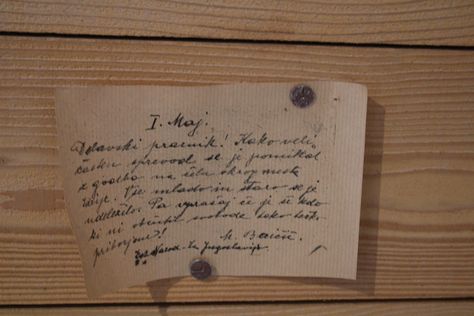 I. Maj.
Delavski praznik! Kako veli-
časten sprevod se je pomikal
z godbo na čelu skozi mesto
. Vse mlado in staro se je
udeležilo. Pa vprašaj če je še kdo
ki ni občutil svobode tako težko
priborjene?!
M.
Zor Narod - Za Jugoslavijo